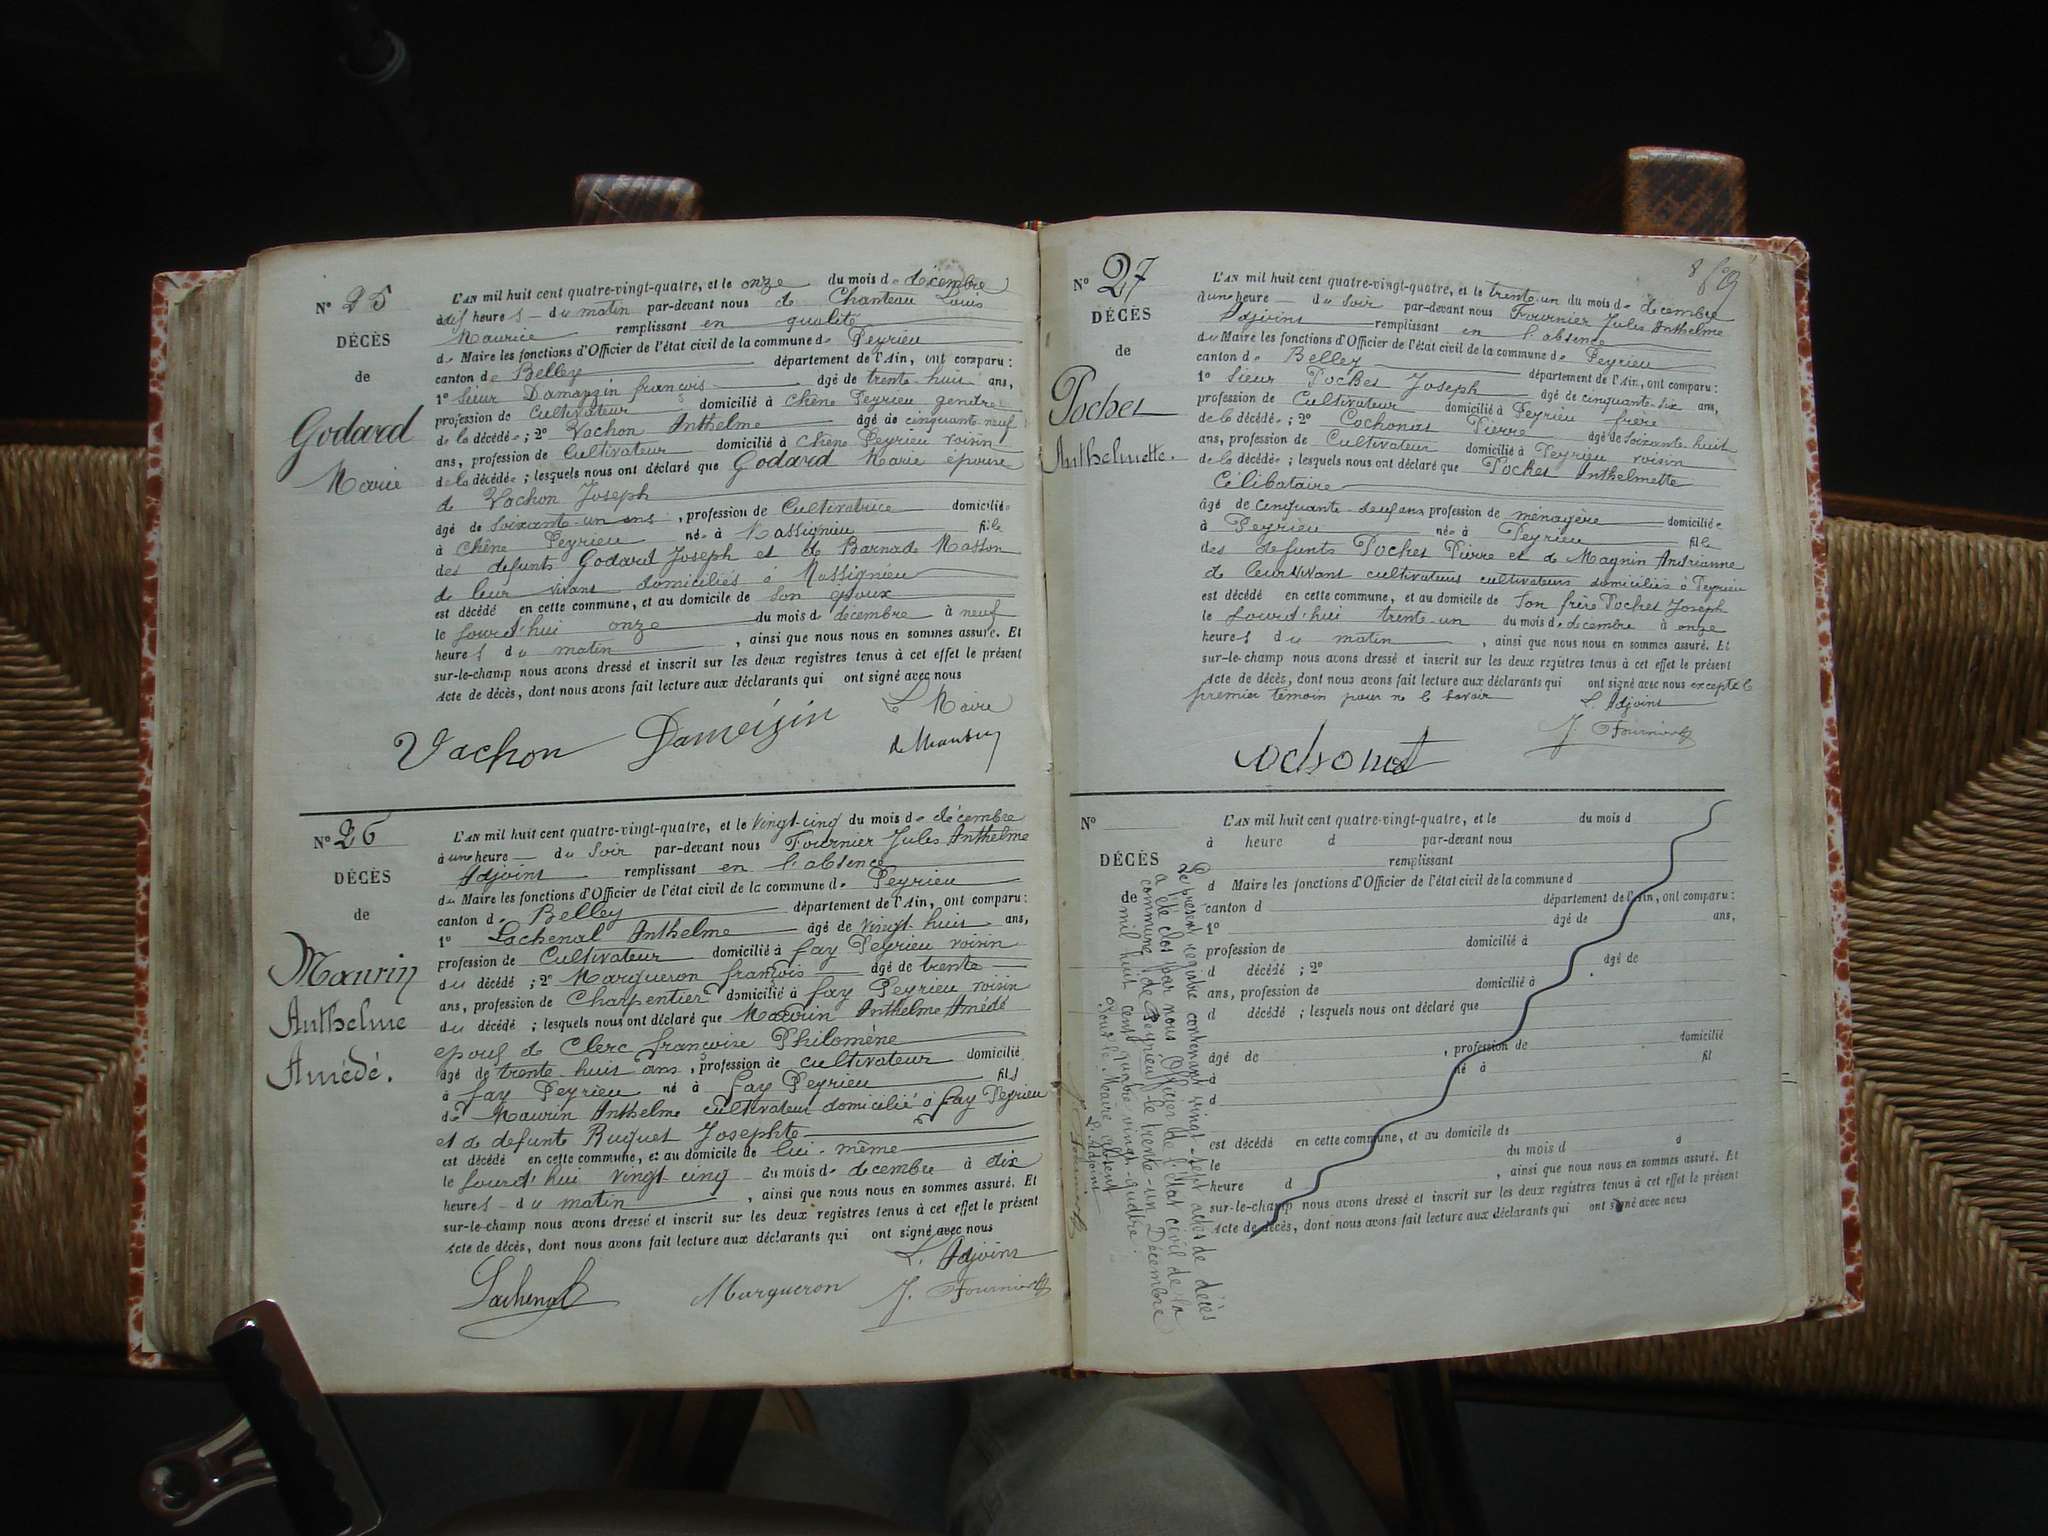 N° 25
DÉCÈS
de
Godard
Marie
L'AN mil huit cent quatre-vingt-quatre, et le onze du mois de décembre
à dix heures du matin par-devant nous de Chanteau Louis
Maurice remplissant en qualité
de Maire les fonctions d'Officier de l'état civil de la commune de Peyrieu
canton de Belley département de l'Ain, ont comparu :
1° Sieur Damaizin françois âgé de trente-huit ans,
profession de Cultivateur domicilié à Chêne Peyrieu gendre
de la décédée ; 2° Vachon Anthelme âgé de cinquante-neuf
ans, profession de Cultivateur domicilié à Chêne Peyrieu voisin
de la décédée ; lesquels nous ont déclaré que Godard Marie épouse
de Vachon Joseph
âgé de soixante-un ans, profession de Cultivatrice domiciliée
à Chêne Peyrieu née à Massignieu fille
des defunts Godard Joseph et de Barnade Masson
de leur vivant domiciliés à Massignieu
est décédé en cette commune, et au domicile de son époux
le Jourd'hui onze du mois de décembre à neuf
heures du matin, ainsi que nous nous en sommes assuré. Et
sur-le-champ nous avons dressé et inscrit sur les deux registres tenus à cet effet le présent
Acte de décès, dont nous avons fait lecture aux déclarants qui ont signé avec nous
Le Maire
Vachon Dameizin
N° 26
DÉCÈS
de
Maurin
Anthelme
Amédé.
L'AN mil huit cent quatre-vingt-quatre, et le vingt-cinq du mois de décembre
à une heure du soir par-devant nous Fournier Jules Anthelme
Adjoint remplissant en l'absence
du Maire les fonctions d'Officier de l'état civil de la commune de Peyrieu
canton de Belley département de l'Ain, ont comparu :
1° Lachenal Anthelme âgé de vingt-huit ans,
profession de Cultivateur domicilié à fay Peyrieu voisin
du décédé ; 2° Margueron françois âgé de trente
ans, profession de Charpentier domicilié à fay Peyrieu voisin
du décédé ; lesquels nous ont déclaré que Maurin Anthelme Amédé
epoux de Clerc françoise Philomène
âgé de trente huit ans, profession de cultivateur domicilié
à fay Peyrieu né à fay Peyrieu fils
de Maurin Anthelme cultivateur domicilié à fay Peyrieu
et de defunte Buguet Josephte
est décédé en cette commune, et au domicile de lui-même
le Jourd'hui vingt-cinq du mois de decembre à dix
heures du matin, ainsi que nous nous en sommes assuré. Et
sur-le-champ nous avons dressé et inscrit sur les deux registres tenus à cet effet le présent
Acte de décès, dont nous avons fait lecture aux déclarants qui ont signé avec nous
L'Adjoint
Lachenal Margueron J. Fournier
N° 27
DÉCÈS
de
Pochet
Anthelmette.
L'AN mil huit cent quatre-vingt-quatre, et le trente-un du mois de décembre
à une heure du soir par-devant nous Fournier Jules Anthelme
Adjoint remplissant en l'absence
du Maire les fonctions d'Officier de l'état civil de la commune de Peyrieu
canton de Belley département de l'Ain, ont comparu :
1° Sieur Pochet Joseph âgé de cinquante-six ans,
profession de Cultivateur domicilié à Peyrieu frère
de la décédée ; 2° Cochonat Pierre âgé de soixante-huit
ans, profession de Cultivateur domicilié à Peyrieu voisin
de la décédée ; lesquels nous ont déclaré que Pochet Anthelmette
Célibataire
âgé de cinquante-deux ans profession de ménagère domiciliée
à Peyrieu née à Peyrieu fille
des defunts Pochet Pierre et de Magnin Andrianne
de leur vivant cultivateurs cultivateurs domiciliés à Peyrieu
est décédé en cette commune, et au domicile de son frère Pochet Joseph
le Jourd'hui trente-un du mois de decembre à onze
heures du matin, ainsi que nous nous en sommes assuré. Et
sur-le-champ nous avons dressé et inscrit sur les deux registres tenus à cet effet le présent
Acte de décès, dont nous avons fait lecture aux déclarants qui ont signé avec nous excepté le
premier témoin pour ne le savoir
L'Adjoint
J. Fournier
Cochonat
N°
DÉCÈS
de
L'AN mil huit cent quatre-vingt-quatre, et le du mois d
à heure d par-devant nous
remplissant
d Maire les fonctions d'Officier de l'état civil de la commune d
canton d département de l'Ain, ont comparu :
1° âgé de ans,
profession de domicilié à
d décédé ; 2° âgé de
ans, profession de domicilié à
d décédé ; lesquels nous ont déclaré que
âgé de , profession de domicilié
à né à fil
d
est décédé en cette commune, et au domicile de
le du mois d à
heure d , ainsi que nous nous en sommes assuré. Et
sur-le-champ nous avons dressé et inscrit sur les deux registres tenus à cet effet le présent
Acte de décès, dont nous avons fait lecture aux déclarants qui ont signé avec nous
Le présent registre contenant vingt-sept actes de décès
a été clos par nous Officier de l'état civil de la
commune de Peyrieu le trente-un Décembre
mil huit cent quatre-vingt-quatre.
Pour le Maire absent
L'Adjoint
J. Fournier